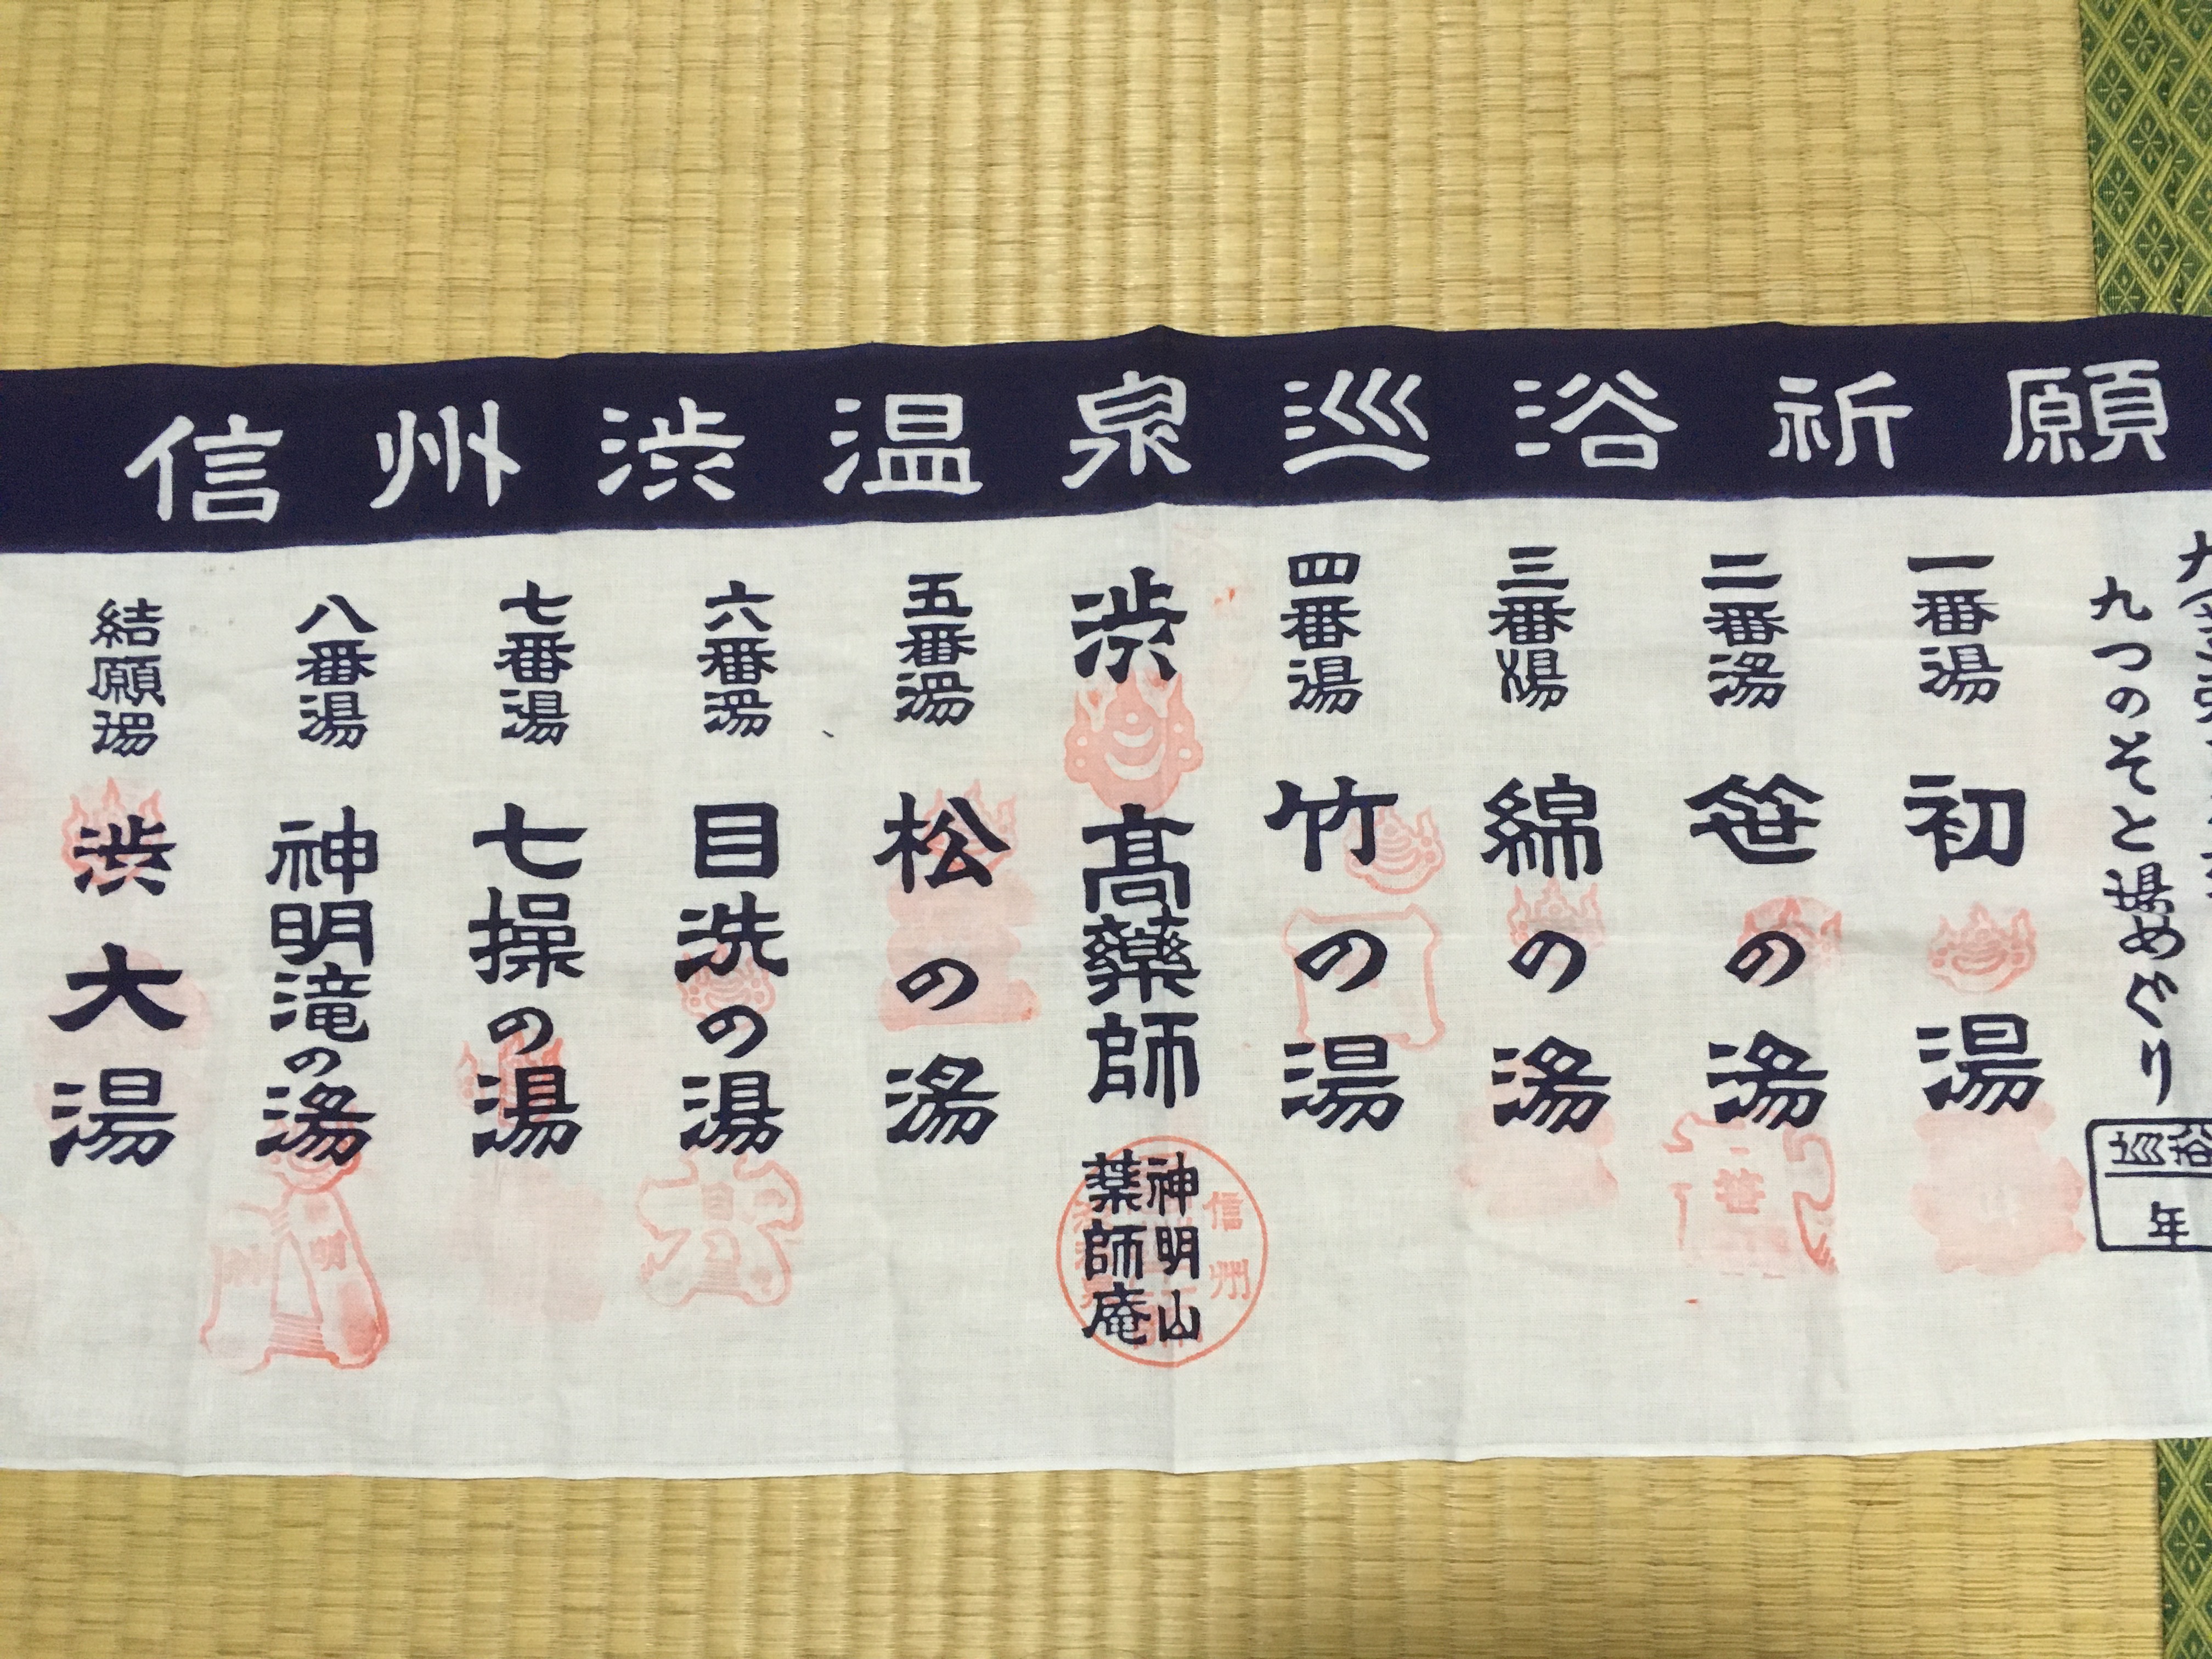 信州渋温泉巡浴祈願
九つのそと湯めぐり
巡浴
年
一番湯 初湯
二番湯 笹の湯
三番湯 綿の湯
四番湯 竹の湯
渋高薬師 神明山薬師庵
信州
五番湯 松の湯
六番湯 目洗の湯
七番湯 七操の湯
八番湯 神明滝の湯
結願湯 渋大湯